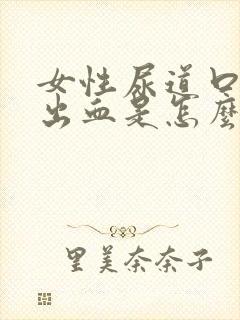 女性尿道口
出血是怎麼
里美奈奈子